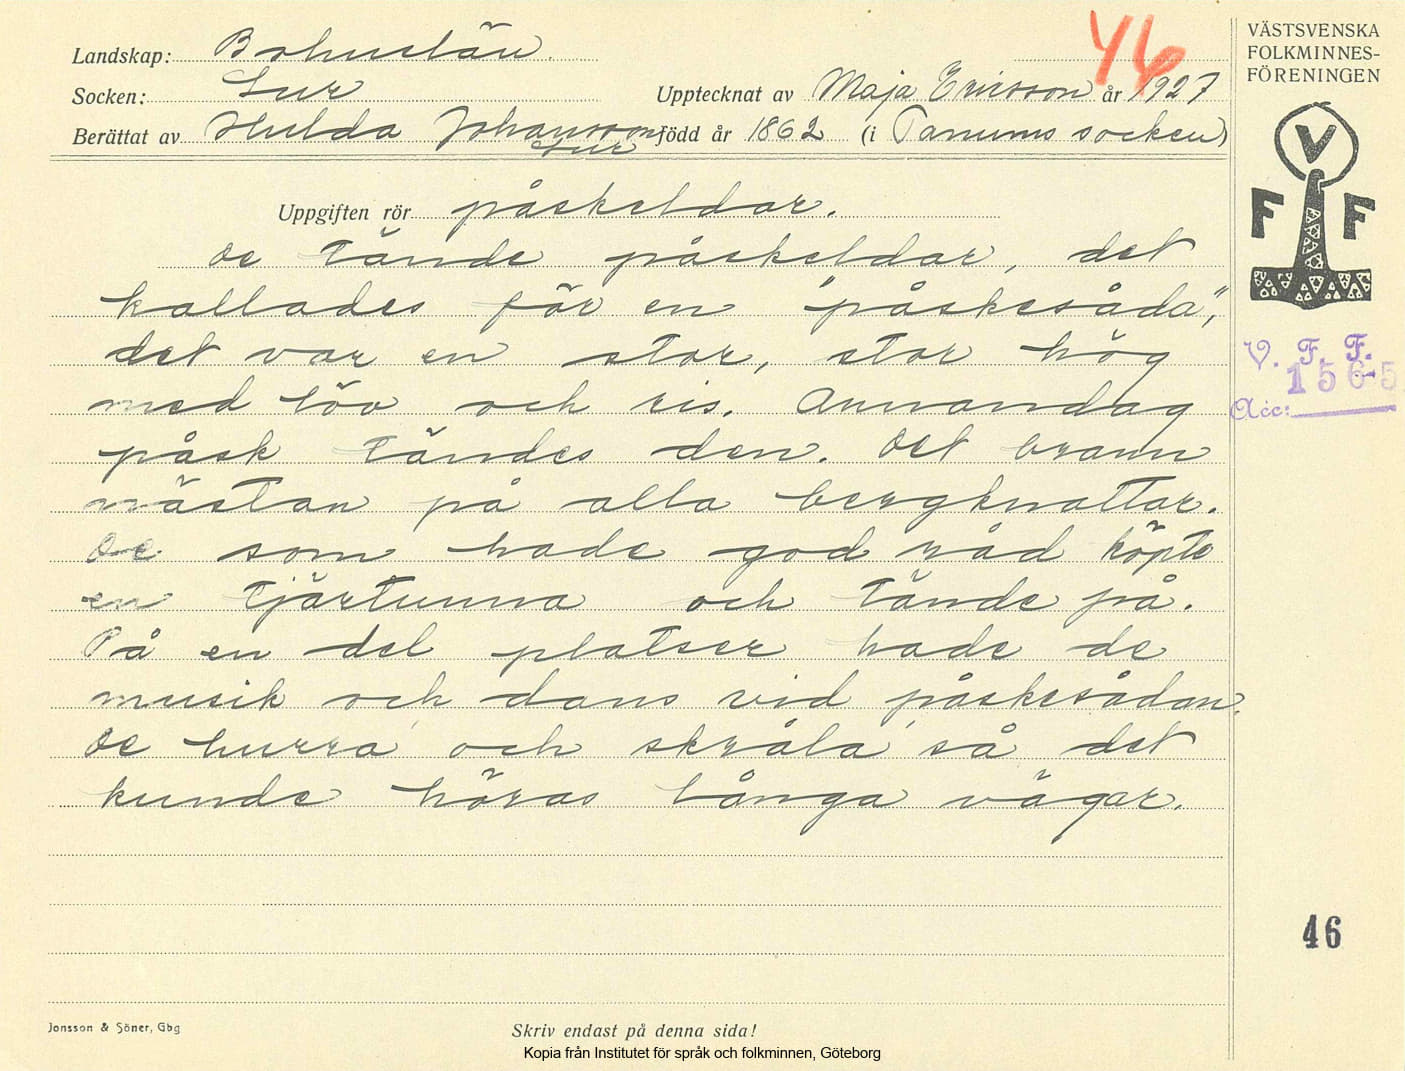 46
VÄSTSVENSKA
FOLKMINNES-
FÖRENINGEN
Landskap: Bohuslän.
Socken: Lur
Upptecknat av Maja Ericsson år 1927
Berättat av Hulda Johansson född år 1862 (i Tanums socken)
Lur
V
F F
Uppgiften rör påskeldar.
De tände påskeldar, det
kallades för en "påskesåda",
det var en stor, stor hög
med löv och ris. Annandag
påsk tändes den. Det brann
nästan på alla bergknattar.
De som hade god råd köpte
en tjärtunna och tände på.
På en del platser hade de
musik och dans vid påskesådan.
De hurra och skråla så det
kunde höras långa vägar.
V. F. F.
1565
Acc:
46
Jonsson & Söner, Gbg
Skriv endast på denna sida!
Kopia från Institutet för språk och folkminnen, Göteborg